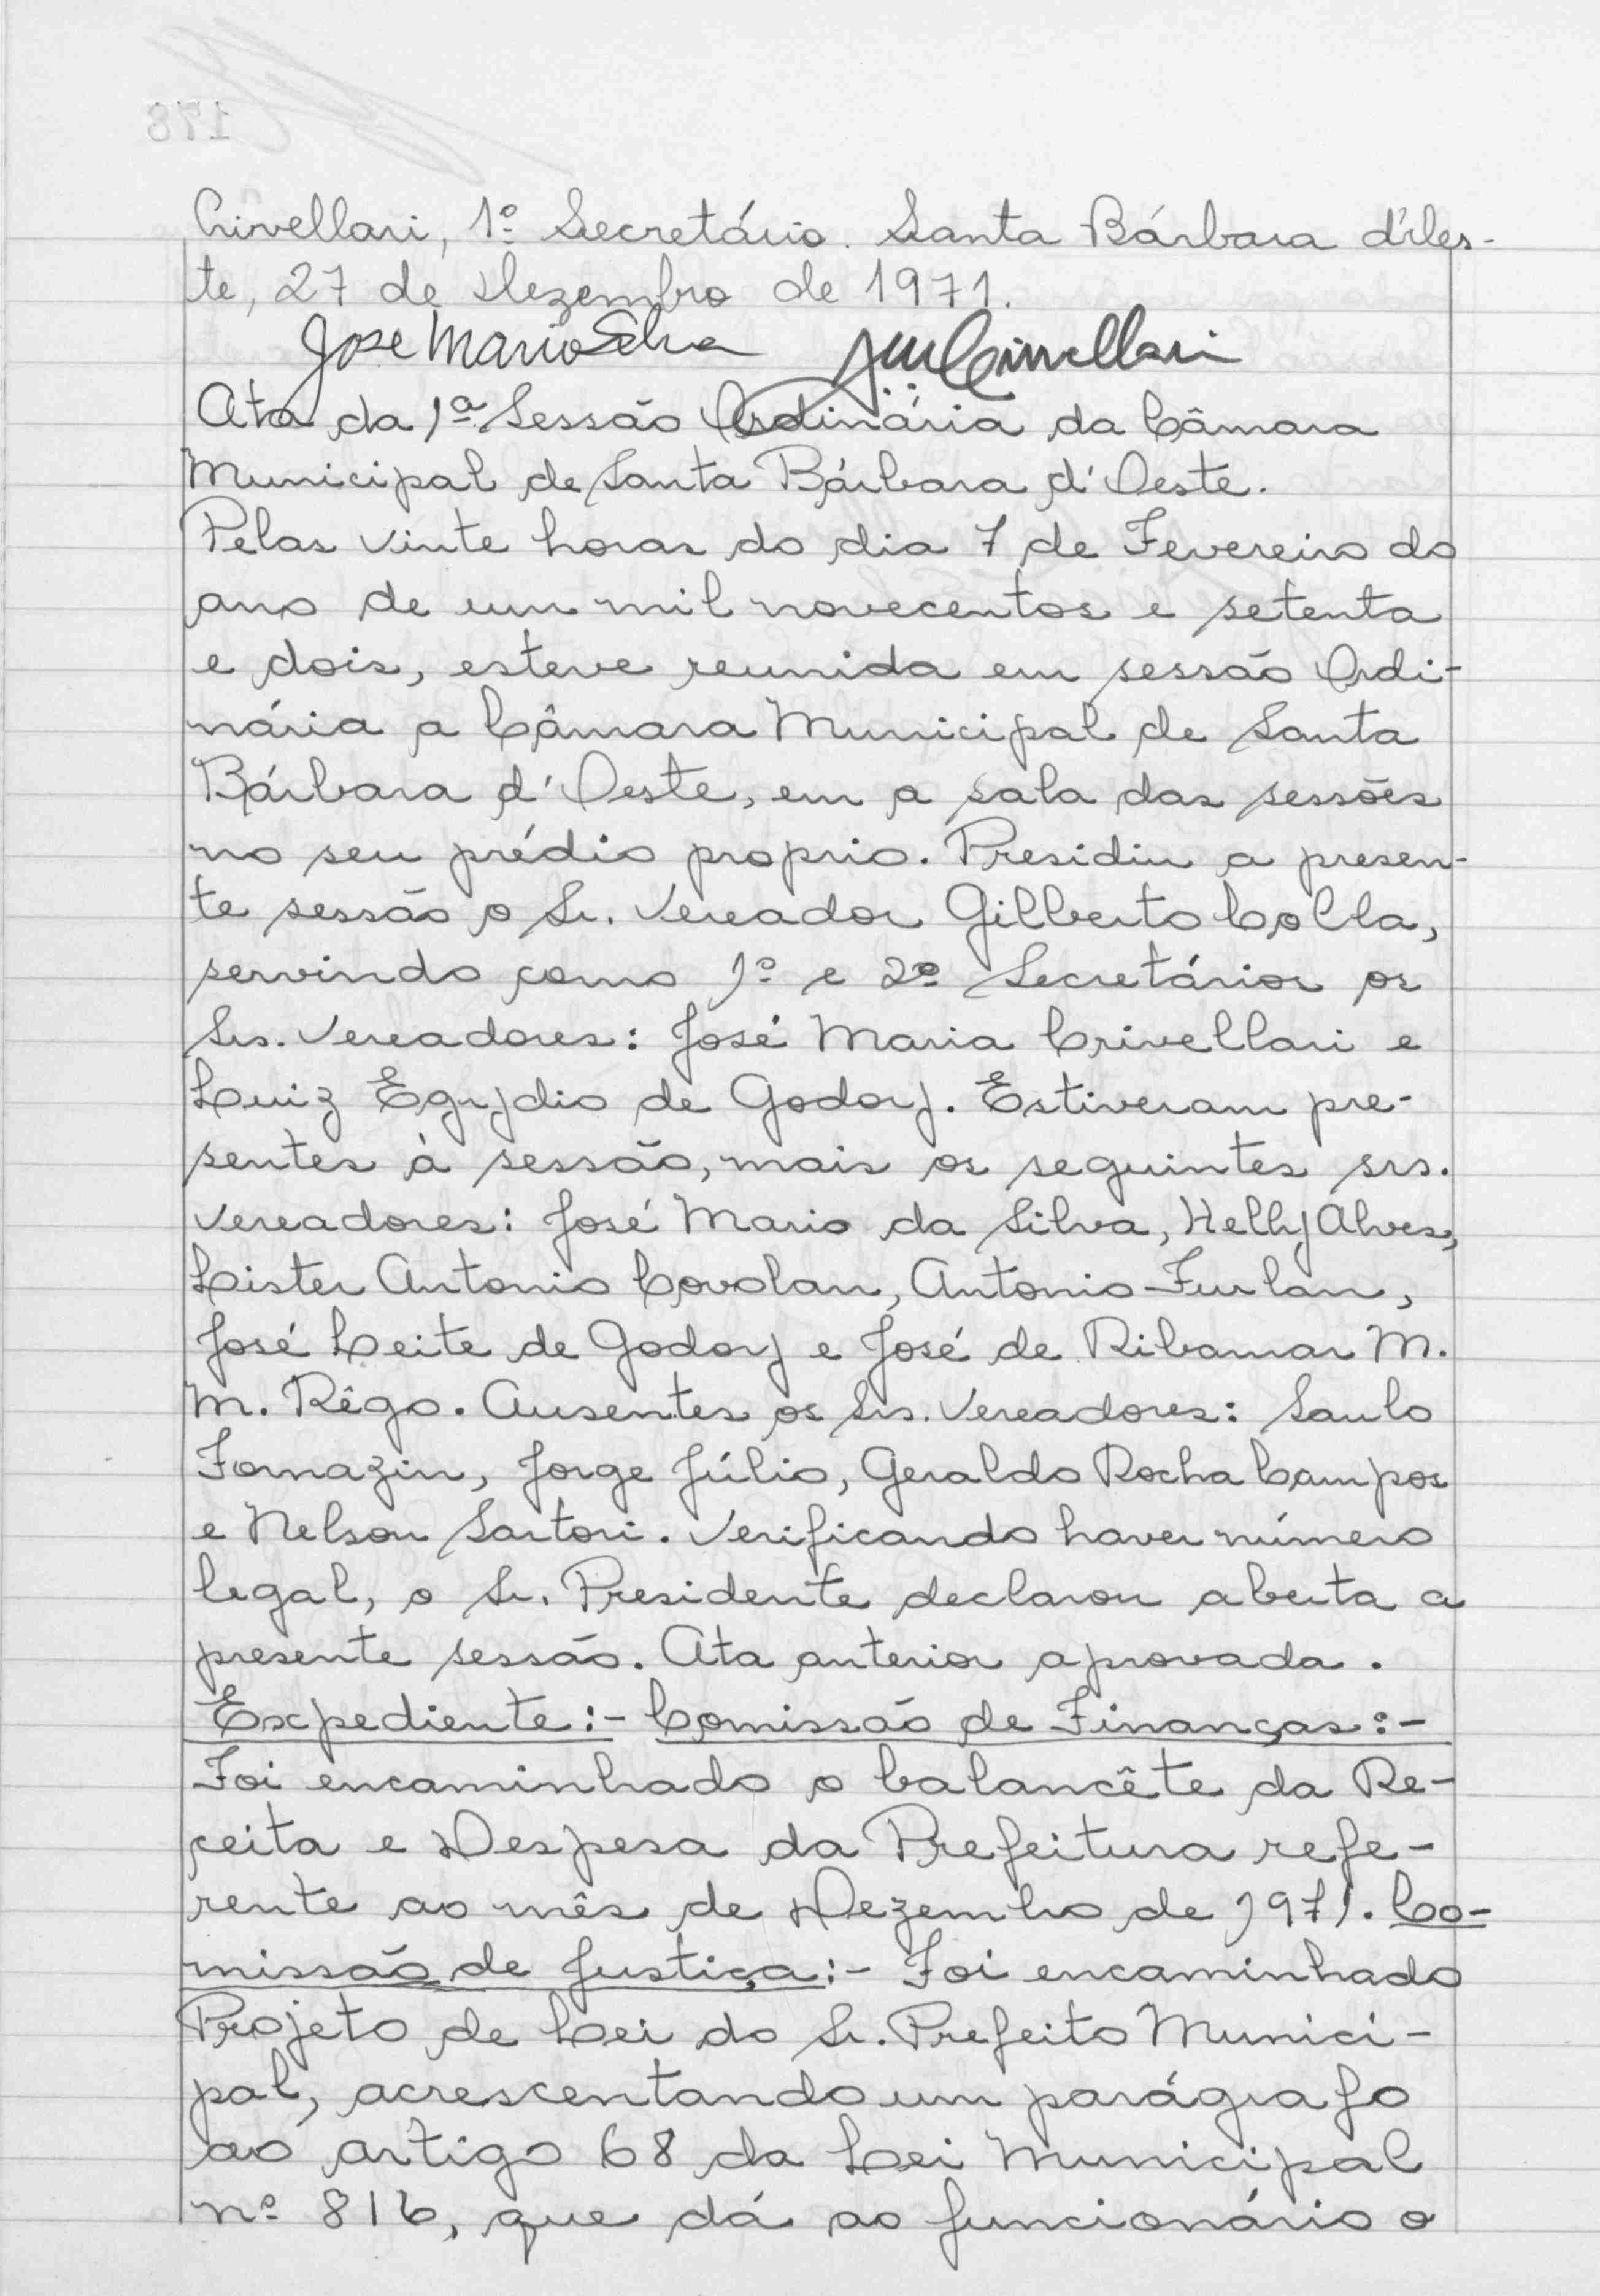 Crivellari, 1º Secretário. Santa Bárbara d'Oes-
te, 27 de Dezembro de 1971.
José Mario Silva Crivellari
Ata da 1ª Sessão Ordinária da Câmara
Municipal de Santa Bárbara d'Oeste.
Pelas vinte horas do dia 7 de Fevereiro do
ano de um mil novecentos e setenta
e dois, esteve reunida em sessão Ordi-
nária a Câmara Municipal de Santa
Bárbara d'Oeste, em a sala das sessões
no seu prédio proprio. Presidiu a presen-
te sessão o Sr. Vereador Gilberto Colla,
servindo como 1º e 2º Secretários os
Srs. Vereadores: José Maria Crivellari e
Luiz Egydio de Godoy. Estiveram pre-
sentes à sessão, mais os seguintes srs.
vereadores: José Mario da Silva, Helly Alves,
Lister Antonio Covolan, Antonio Furlan,
José Leite de Godoy e José de Ribamar M.
M. Rêgo. Ausentes os Srs. Vereadores: Saulo
Fornazin, Jorge Júlio, Geraldo Rocha Campos
e Nelson Sartori. Verificando haver número
legal, o Sr. Presidente declarou aberta a
presente sessão. Ata anterior aprovada.
Expediente:- Comissão de Finanças:-
Foi encaminhado o balancête da Re-
ceita e Despesa da Prefeitura refe-
rente ao mês de Dezembro de 1971. Co-
missão de Justiça:- Foi encaminhado
Projeto de Lei do Sr. Prefeito Munici-
pal, acrescentando um parágrafo
ao artigo 68 da Lei Municipal
nº 816, que dá ao funcionário o